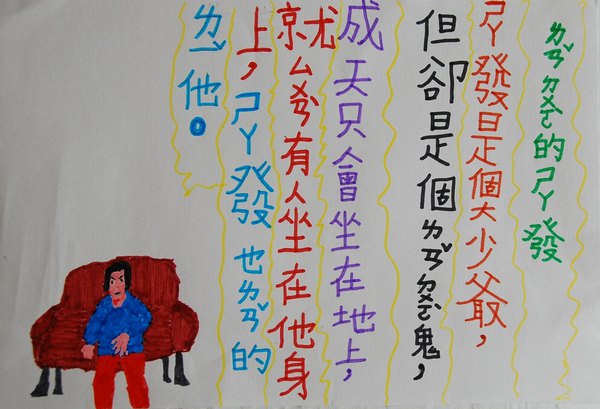 ㄌㄢˇㄉㄨㄛˋ的ㄕㄚ發
ㄕㄚ發是個大少爺，
但卻是個ㄌㄢˇㄉㄨㄛˋ鬼，
成天只會坐在地上，
就ㄙㄨㄢˋ有人坐在他身
上，ㄕㄚ發也ㄌㄢˇ的
ㄌㄧˇ他。